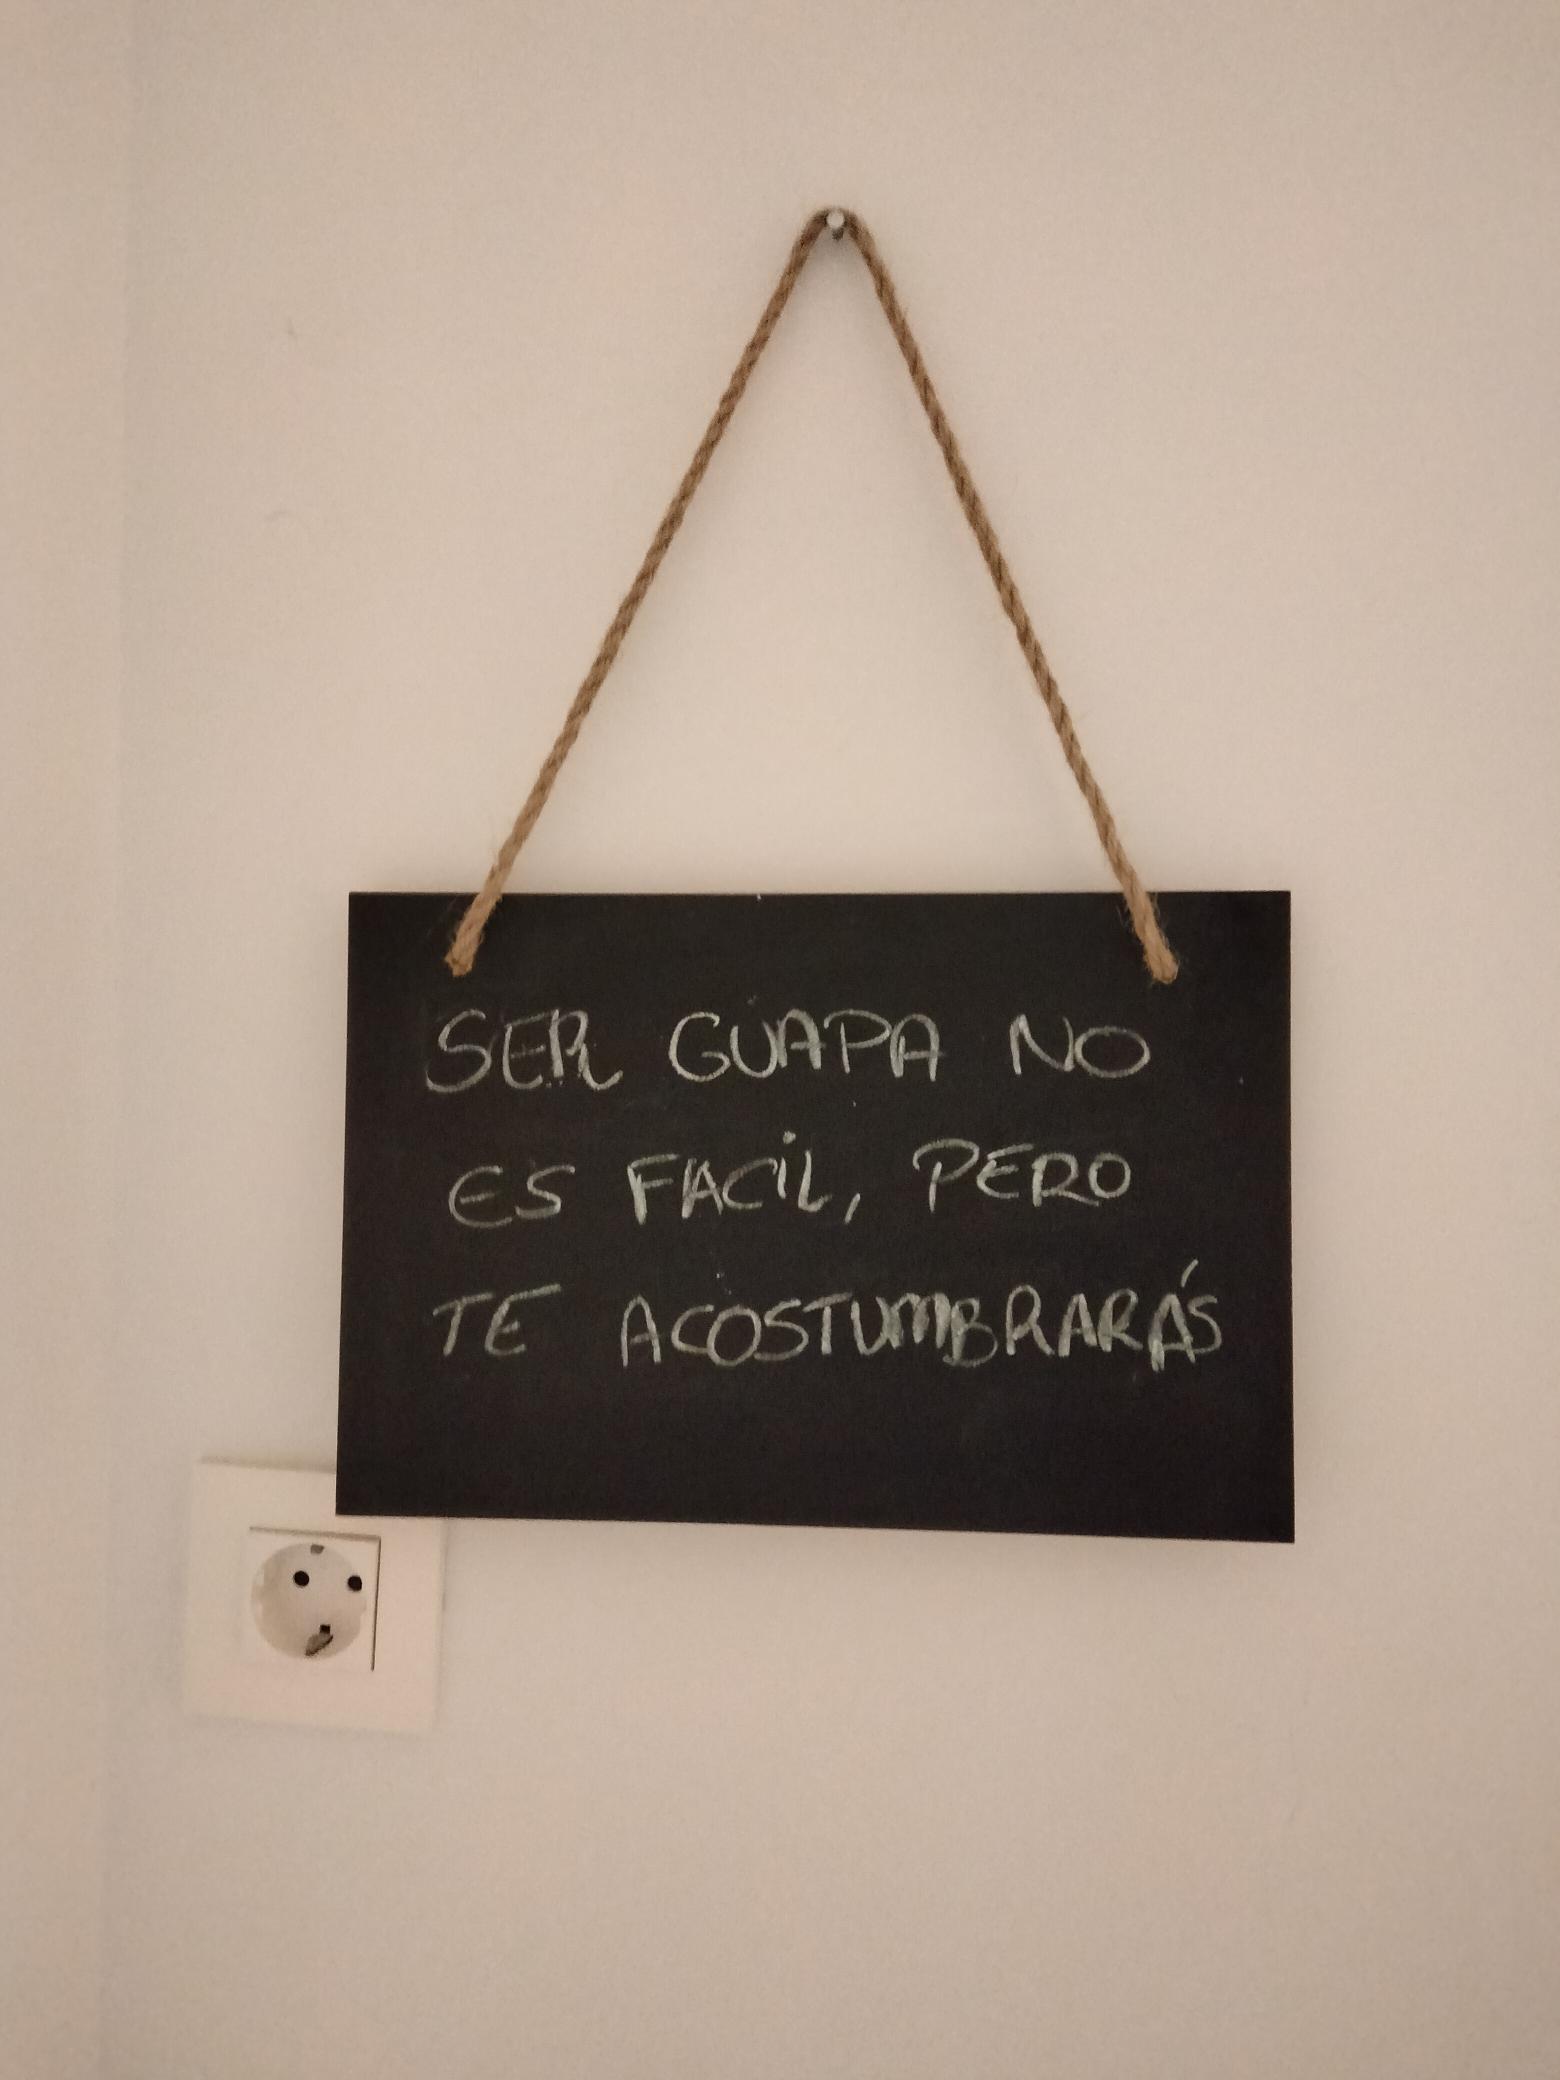 SER GUAPA NO
ES FACIL, PERO
TE ACOSTUMBRARÁS